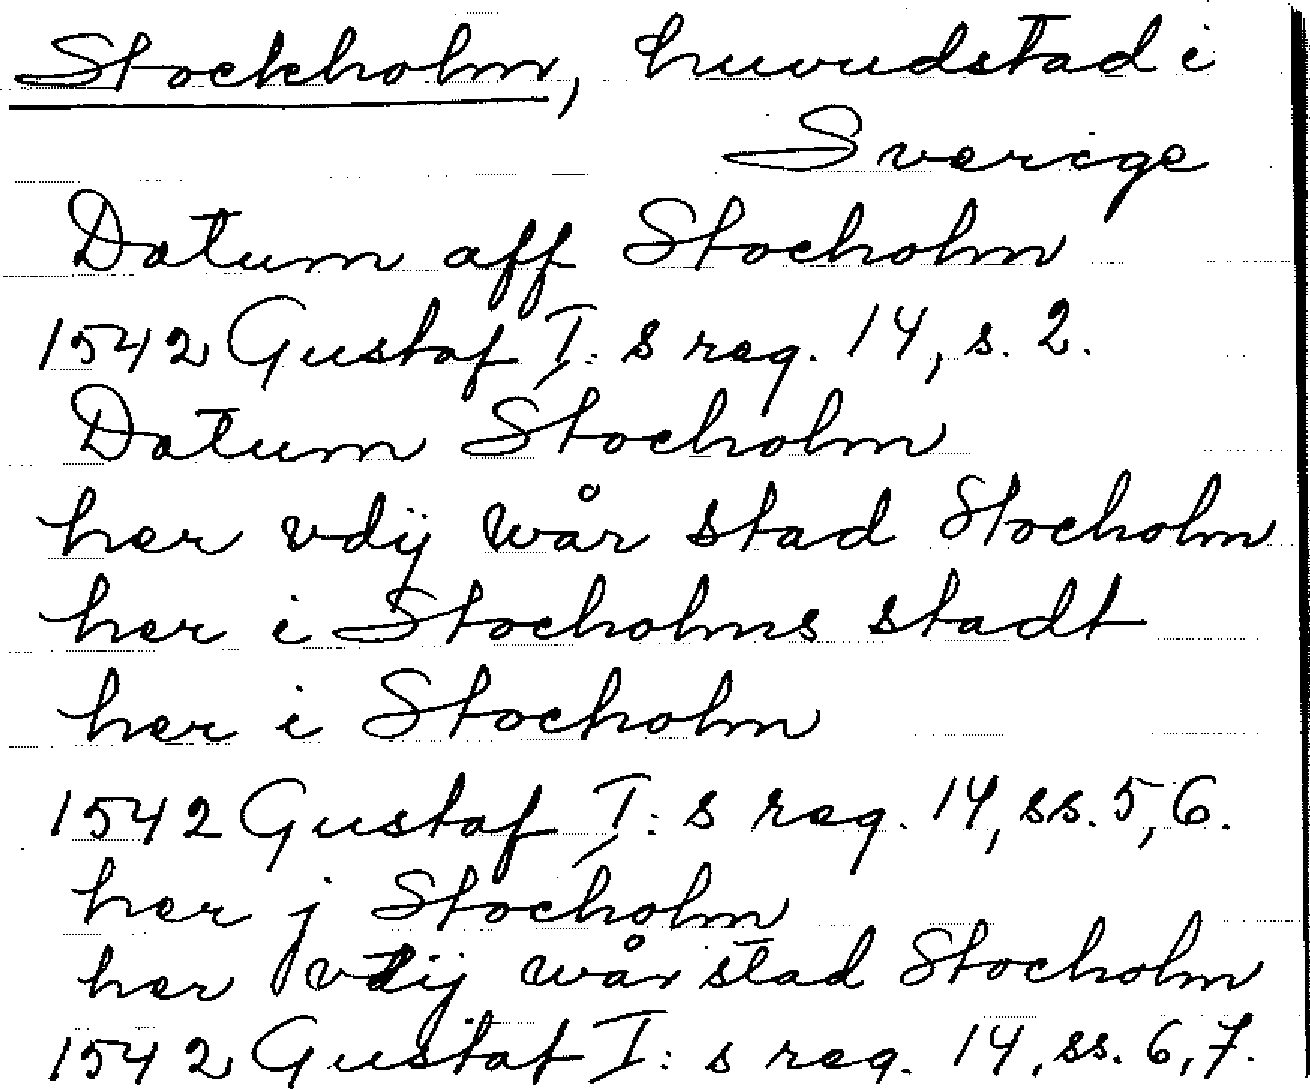 Stockholm, huvudstad i
Sverige
Datum aff Stocholm
1542 Gustaf I:s reg. 14, s. 2.
Datum Stocholm
her vdij wår stad Stocholm
her i Stocholms stadt
her i Stocholm
1542 Gustaf I:s reg. 14, ss. 5, 6.
her j Stocholm
her vtij wår stad Stocholm
1542 Gustaf I:s reg. 14, ss. 6, 7.